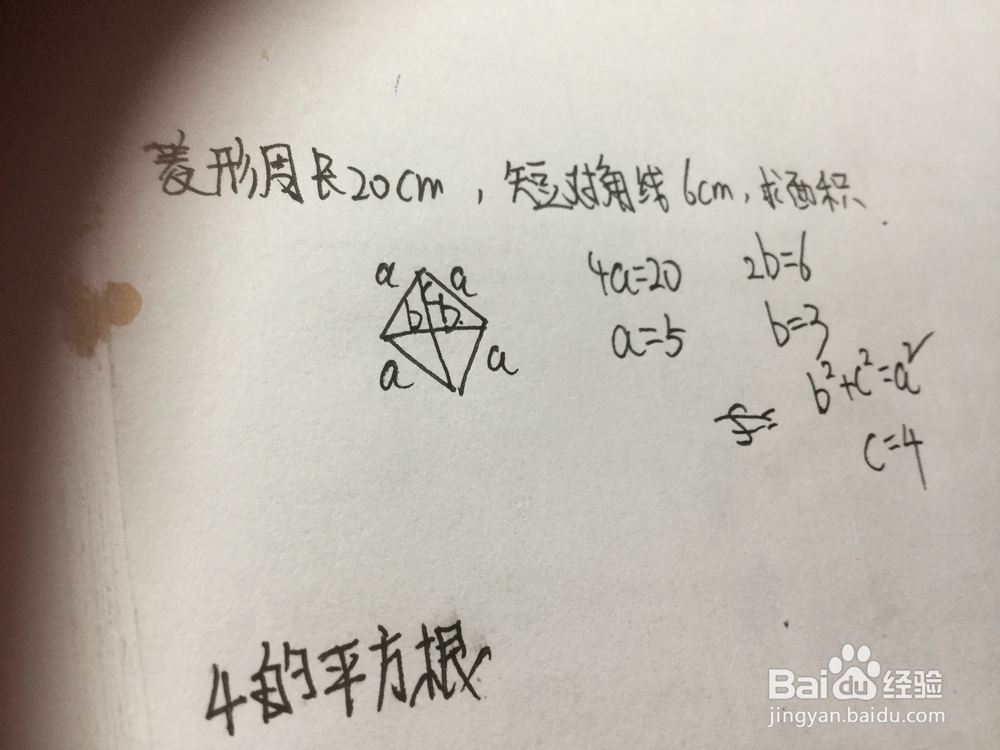 菱形周长20cm，短对角线6cm，求面积.
a a
b b
a a
4a=20 2b=6
a=5 b=3
b²+c²=a²
S=
c=4
4的平方根
Baidu经验
jingyan.baidu.com